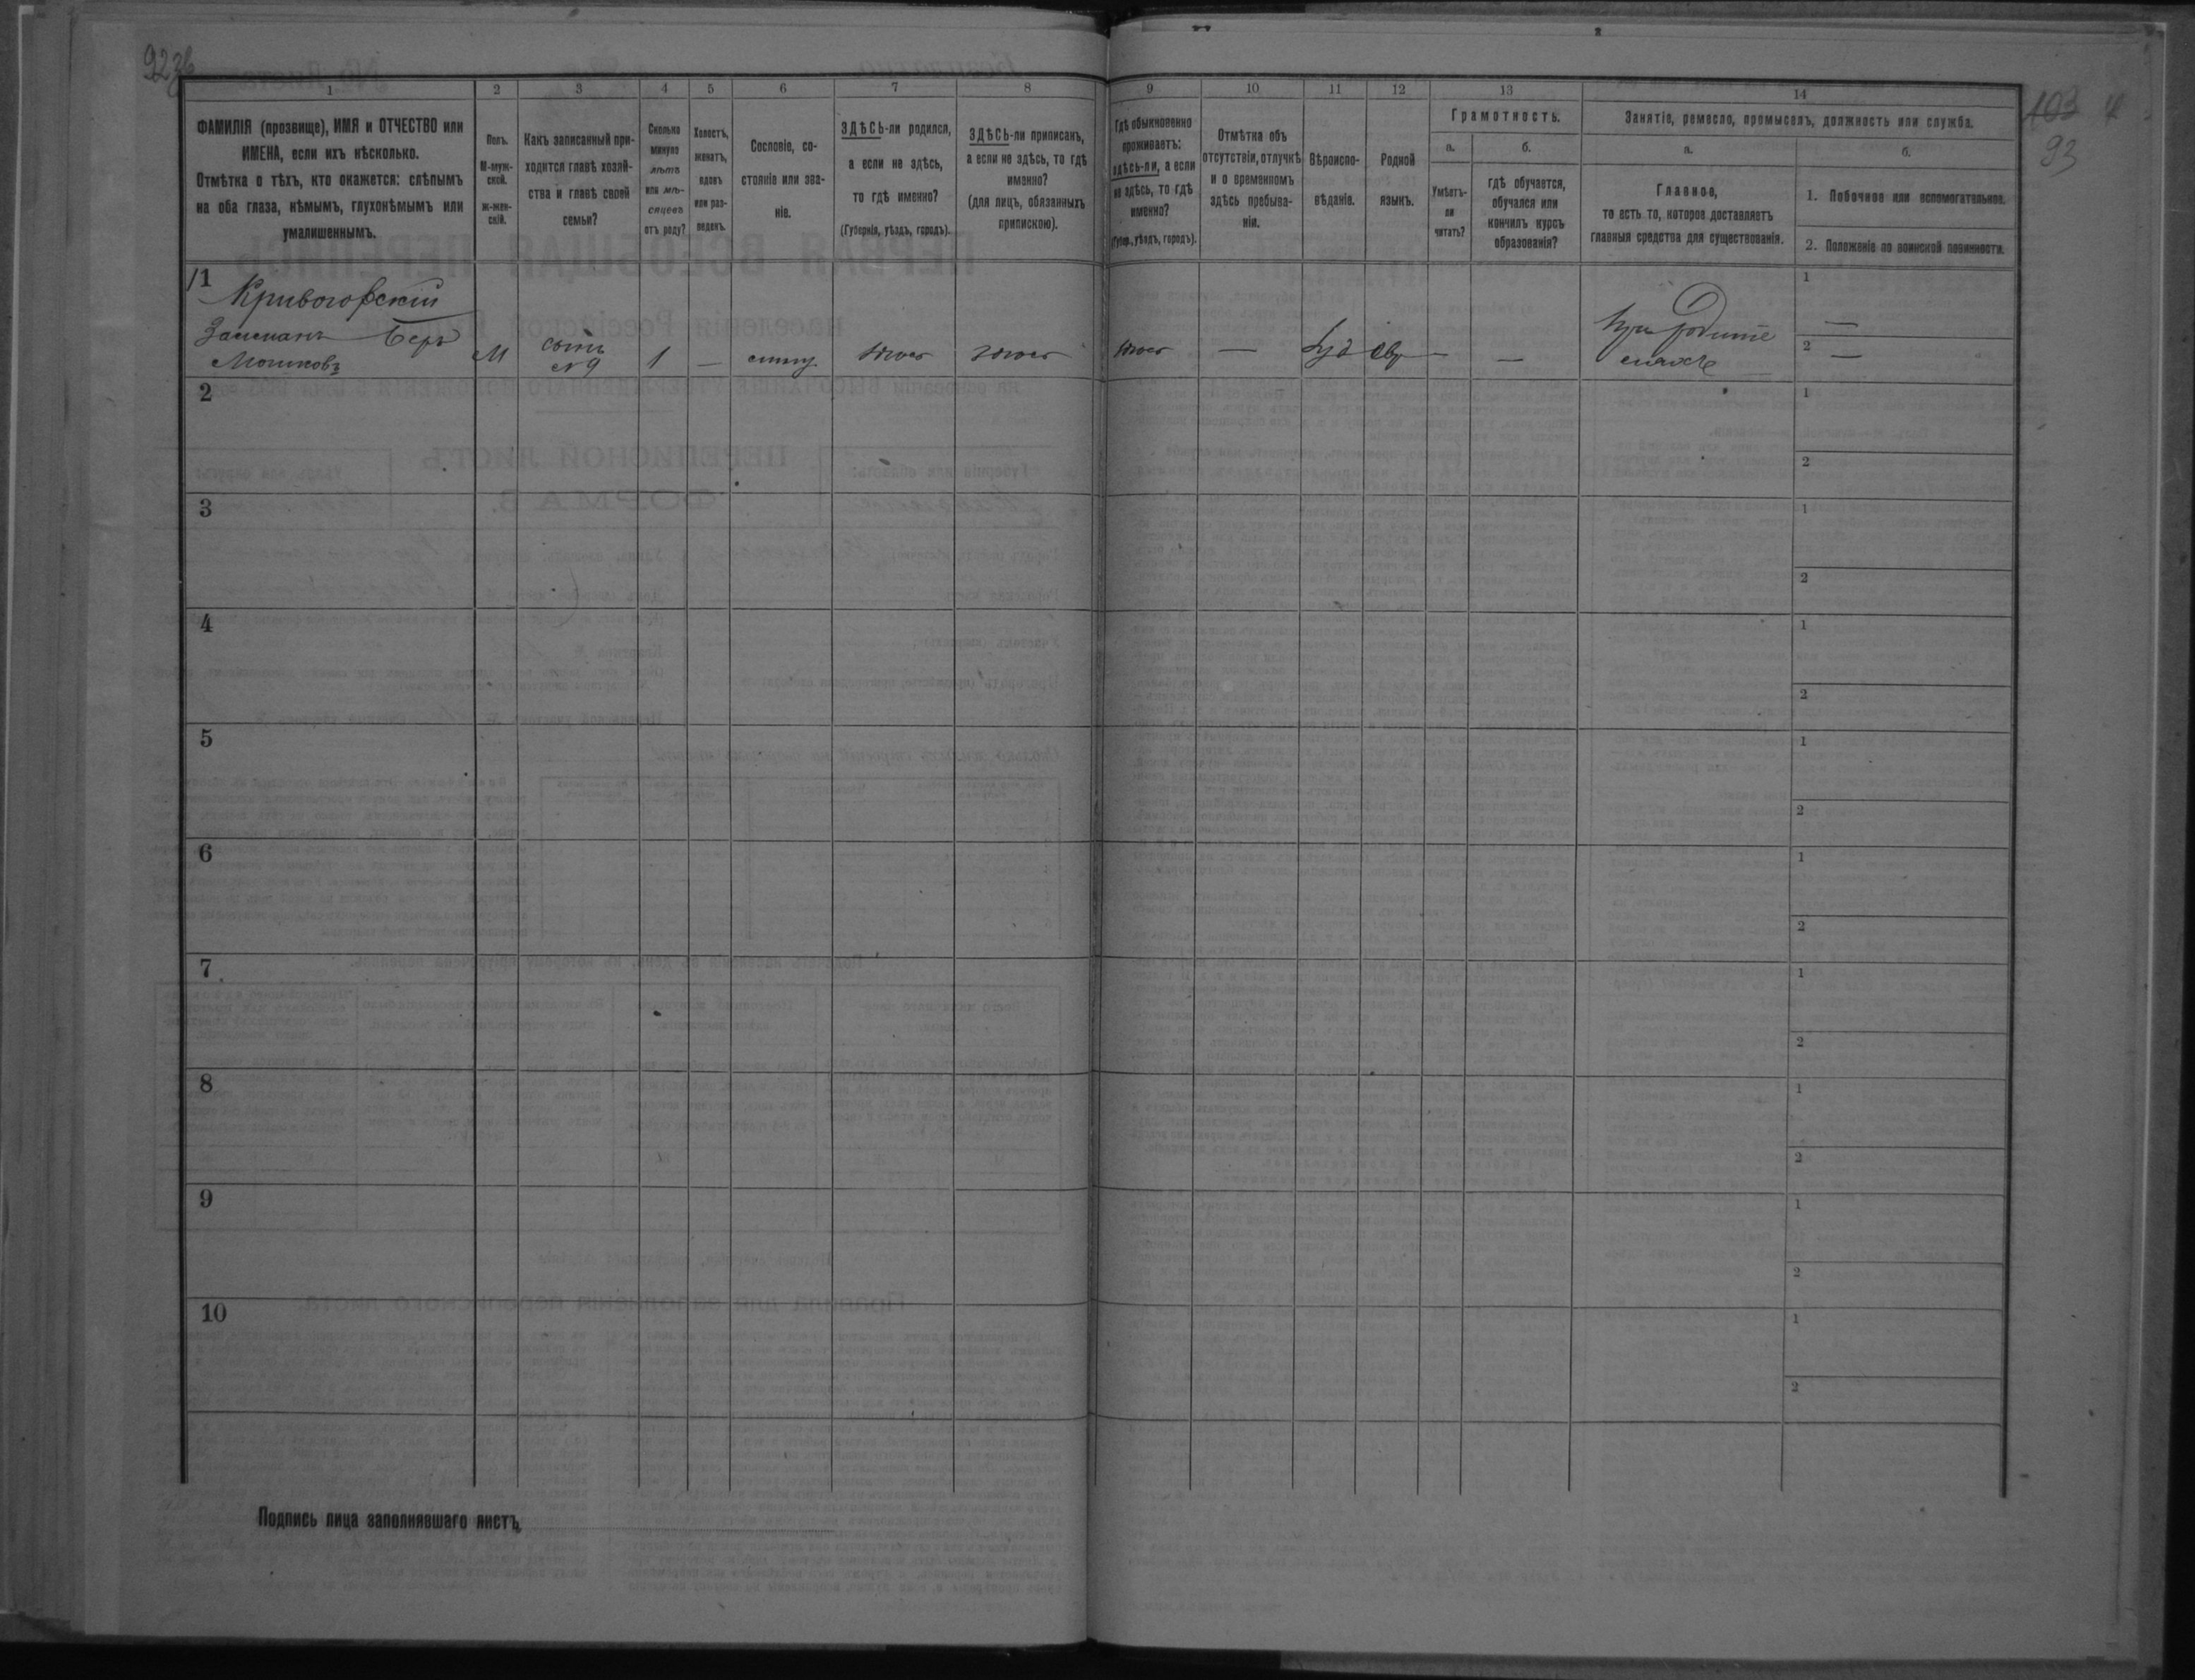 923б
103 4
93
1
2
3
4
5
6
7
8
9
10
11
12
13
14
ФАМИЛІЯ (прозвище), ИМЯ и ОТЧЕСТВО или
ИМЕНА, если ихъ нѣсколько.
Отмѣтка о тѣхъ, кто окажется: слѣпымъ
на оба глаза, нѣмымъ, глухонѣмымъ или
умалишеннымъ.
Полъ.
М-муж-
ской.
ж-жен-
скій.
Какъ записанный при-
ходится главѣ хозяй-
ства и главѣ своей
семьи?
Сколько
минуло
лѣтъ
или мѣ-
сяцевъ
отъ роду?
Холостъ,
женатъ,
вдовъ
или раз-
веденъ.
Сословіе, со-
стояніе или зва-
ніе.
ЗДѢСЬ-ли родился,
а если не здѣсь,
то гдѣ именно?
(Губернія, уѣздъ, городъ).
ЗДѢСЬ-ли приписанъ,
а если не здѣсь, то гдѣ
именно?
(для лицъ, обязанныхъ
припискою).
Гдѣ обыкновенно
проживаетъ:
здѣсь-ли, а если
не здѣсь, то гдѣ
именно?
(Губер., уѣздъ, городъ).
Отмѣтка объ
отсутствіи, отлучкѣ
и о временномъ
здѣсь пребыва-
ніи.
Вѣроиспо-
вѣданіе.
Родной
языкъ.
Грамотность.
а.
б.
Умѣетъ-
ли
читать?
гдѣ обучается,
обучался или
кончилъ курсъ
образованія?
Занятіе, ремесло, промыселъ, должность или служба.
а.
б.
Главное,
то есть то, которое доставляетъ
главныя средства для существованія.
1. Побочное или вспомогательное.
2. Положеніе по воинской повинности.
1
Кривогорскій
Беръ
Мошковъ
М
сынъ
№9
1
—
здѣсь
здѣсь
здѣсь
—
Іуд
Евр
—
—
при родите
ляхъ
1 —
2 —
2
1
2
3
1
2
4
1
2
5
1
2
6
1
2
7
1
2
8
1
2
9
1
2
10
1
2
Подпись лица заполнявшаго листъ